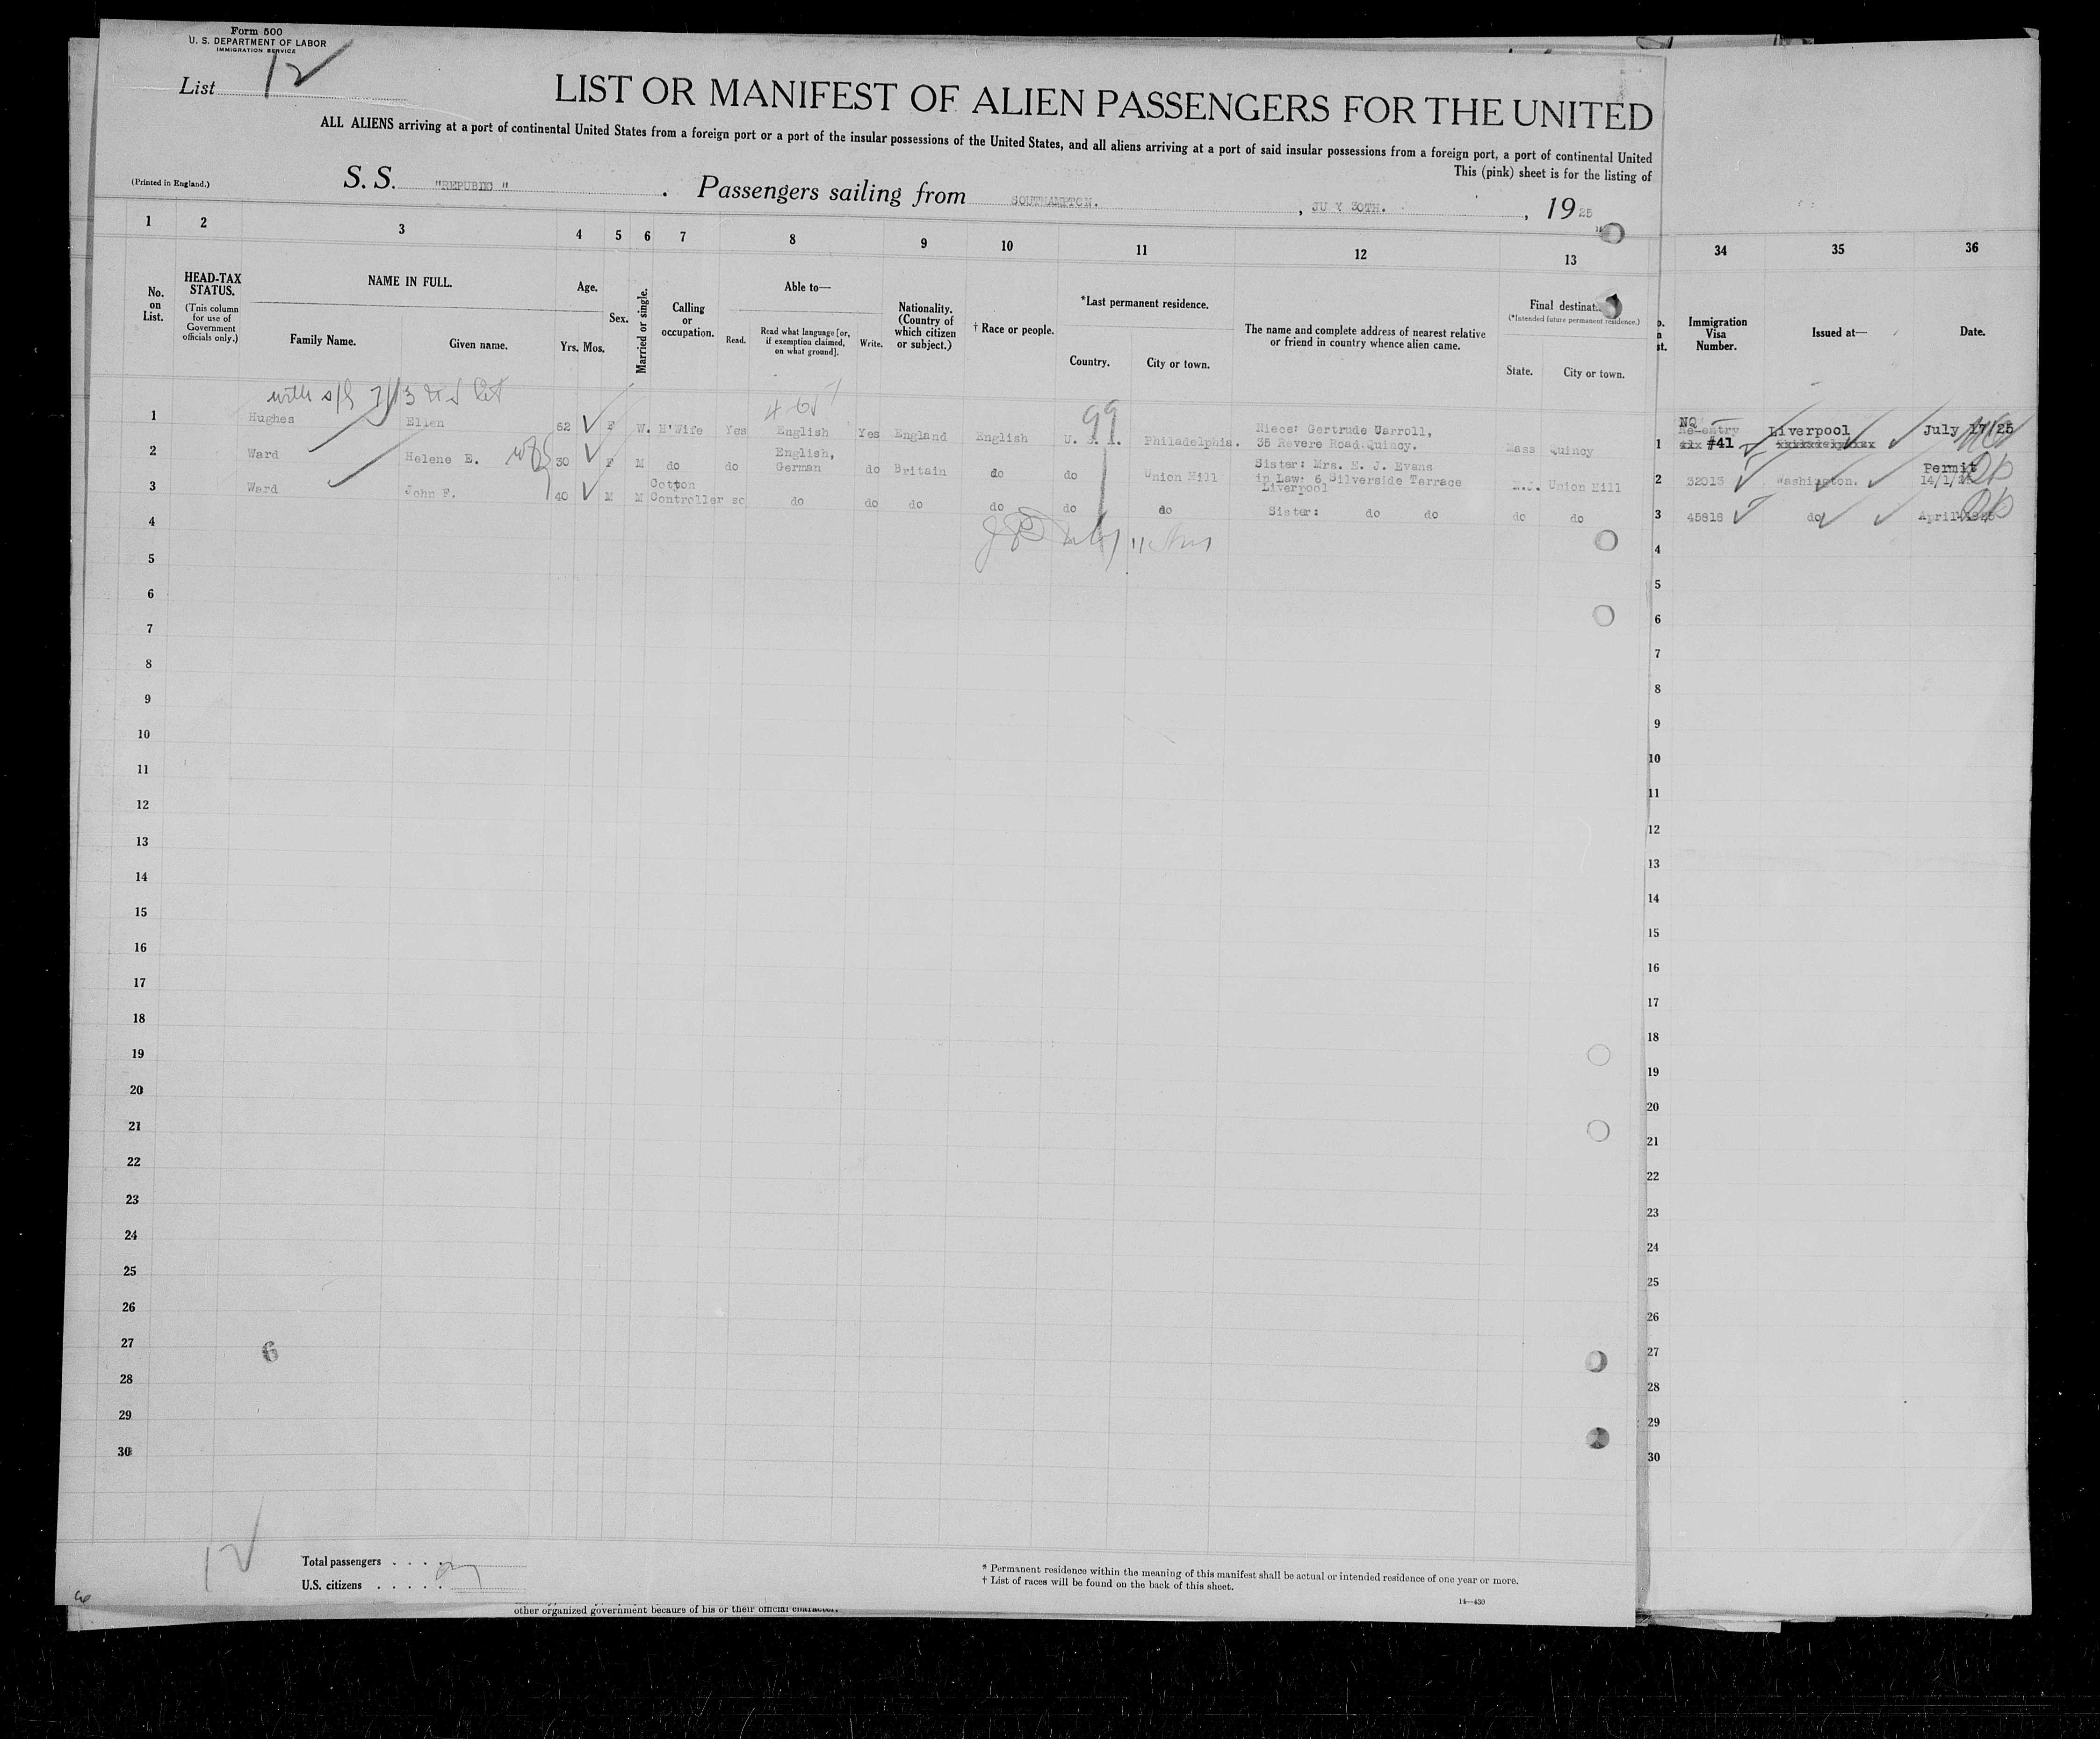 Form 500
U. S. DEPARTMENT OF LABOR
IMMIGRATION SERVICE
List 12
LIST OR MANIFEST OF ALIEN PASSENGERS FOR THE UNITED
ALL ALIENS arriving at a port of continental United States from a foreign port or a port of the insular possessions of the United States, and all aliens arriving at a port of said insular possessions from a foreign port, a port of continental United
This (pink) sheet is for the listing of
(Printed in England.)
S. S. "REPUBLIC" . Passengers sailing from SOUTHAMPTON. , JULY 30TH. , 1925
1 2 3 4 5 6 7 8 9 10 11 12 13 34 35 36
No. on List.
HEAD-TAX STATUS.
(This column for use of Government officials only.)
NAME IN FULL.
Family Name. Given name.
Age.
Yrs. Mos.
Sex.
Married or single.
Calling or occupation.
Able to—
Read. Read what language [or, if exemption claimed, on what ground]. Write.
Nationality. (Country of which citizen or subject.)
† Race or people.
*Last permanent residence.
Country. City or town.
The name and complete address of nearest relative or friend in country whence alien came.
Final destinat
(*Intended future permanent residence.)
State. City or town.
Immigration Visa Number.
Issued at—
Date.
1 Hughes Ellen 62 F W. H'Wife Yes English Yes England English U. S. A. Philadelphia. Niece: Gertrude Carroll, 35 Revere Road.Quincy. Mass Quincy 1 NQ Re-entry #41 Liverpool July 17/25
99
2 Ward Helene E. 30 F M do do English, German do Britain do do Union Hill Sister: Mrs. E. J. Evans in Law: 6 Silverside Terrace Liverpool N.J. Union Hill 2 32013 Washington. Permit 14/1/25
3 Ward John F. 40 M M Cotton Controller do do do do do do Sister: do do do do 3 45818 do April
4 4
5 5
6 6
7 7
8 8
9 9
10 10
11 11
12 12
13 13
14 14
15 15
16 16
17 17
18 18
19 19
20 20
21 21
22 22
23 23
24 24
25 25
26 26
27 27
6
28 28
29 29
30 30
12
Total passengers . . . .
U.S. citizens . . . . .
* Permanent residence within the meaning of this manifest shall be actual or intended residence of one year or more.
† List of races will be found on the back of this sheet.
14—430
other organized government because of his or their official character.